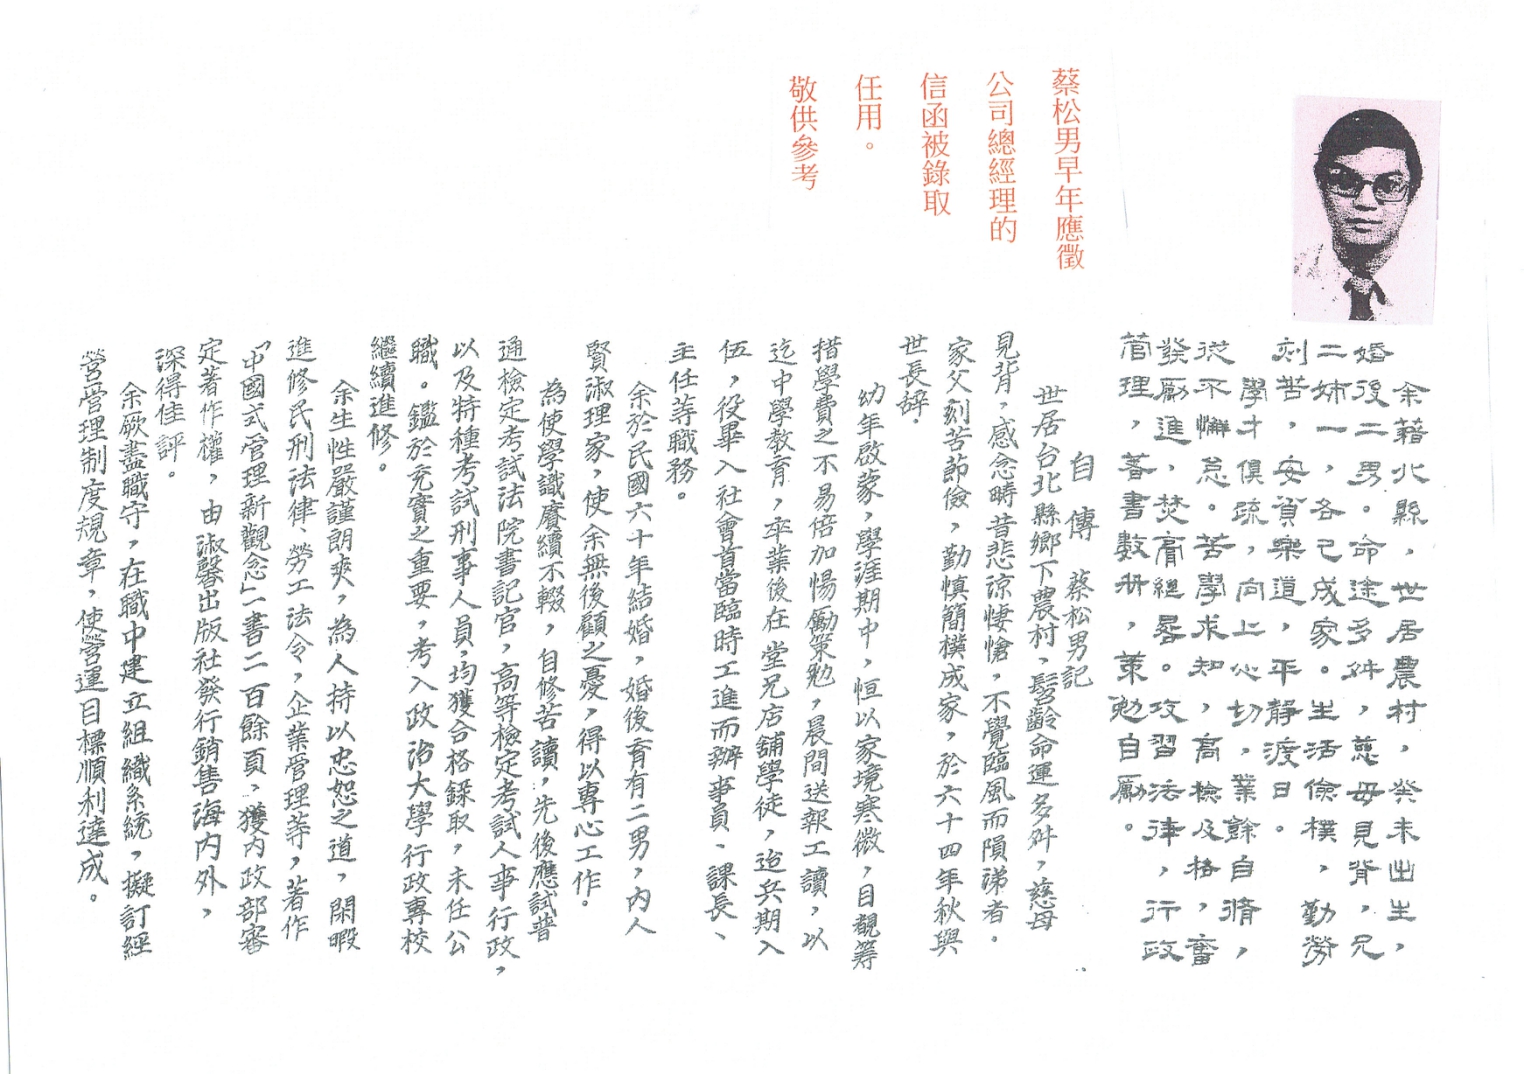 余藉北縣，世居農村，癸未出生，
婚後二男。命途多舛，慈母見背，兄
二姊一，各已成家。生活儉樸，勤勞
刻苦，安貧樂道，平靜渡日。
學才俱疏，向上心切，業餘自脩，
從不懈怠。苦學求知，高檢及格，奮
發勵進，焚膏繼晷。攻習法律，行政
管理，著書數册，策勉自勵。
蔡松男早年應徵
公司總經理的
信函被錄取
任用。
敬供參考
自傳 蔡松男記
世居台北縣鄉下農村，髫齡命運多舛，慈母
見背，感念疇昔悲涼悽愴，不覺臨風而隕涕者。
家父刻苦節儉，勤慎簡樸成家，於六十四年秋與
世長辞．
幼年啟蒙，學涯期中，恒以家境寒微，目覩籌
措學費之不易倍加惕勵策勉，晨間送報工讀，以
迄中學教育，卒業後在堂兄店舖學徒，迨兵期入
伍，役畢入社會首當臨時工進而辦事員、課長、
主任等職務。
余於民國六十年結婚，婚後育有二男，內人
賢淑理家，使余無後顧之憂，得以專心工作。
為使學識賡續不輟，自修苦讀，先後應試普
通檢定考試法院書記官，高等檢定考試人事行政，
以及特種考試刑事人員，均獲合格錄取，未任公
職。鑑於充實之重要，考入政治大學行政專校
繼續進修。
余生性嚴謹朗爽，為人持以忠恕之道，閑暇
進修民刑法律、勞工法令，企業管理等，著作
「中國式管理新觀念」一書二百餘頁，獲內政部審
定著作權，由淑馨出版社發行銷售海內外，
深得佳評。
余厥盡職守，在職中建立組織系統，擬訂經
營管理制度規章，使營運目標順利達成。